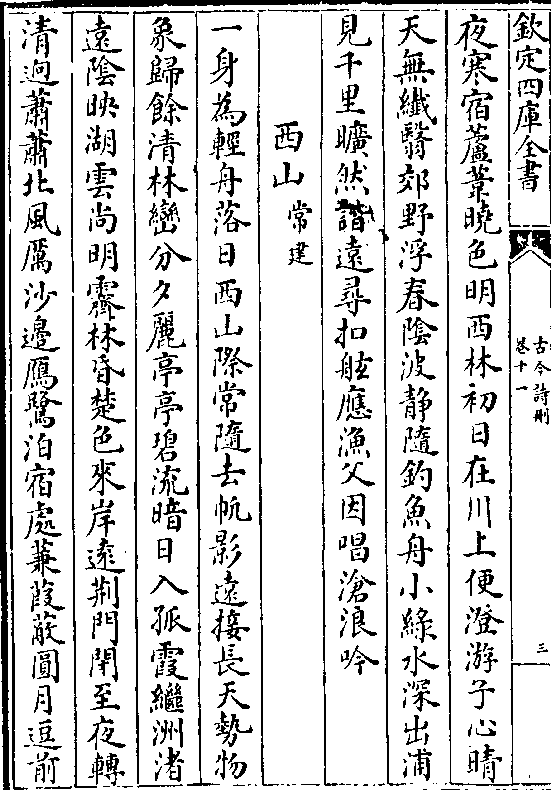 欽定四庫全書
古今詩刪
卷十一
三
夜寒宿蘆葦曉色明西林初日在川上便澄游子心晴
天無纖翳郊野浮春陰波静隨釣魚舟小綠水深出浦
見千里曠然諧遠尋扣舷應漁父因唱滄浪吟
西山 常建
一身為輕舟落日西山際常隨去帆影遠接長天勢物
象歸餘清林巒分夕麗亭亭碧流暗日入孤霞繼洲渚
遠陰映湖雲尚明霽林昏楚色來岸遠荆門閉至夜轉
清迥蕭蕭北風厲沙邊鴈鷺泊宿處蒹葭蔽圓月逗前